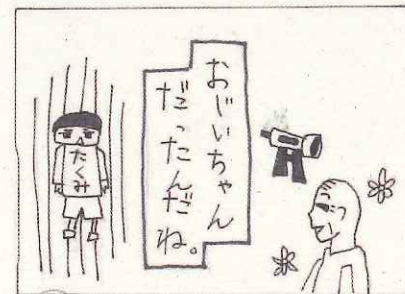 おじいちゃん
だったんだね。
たくみ